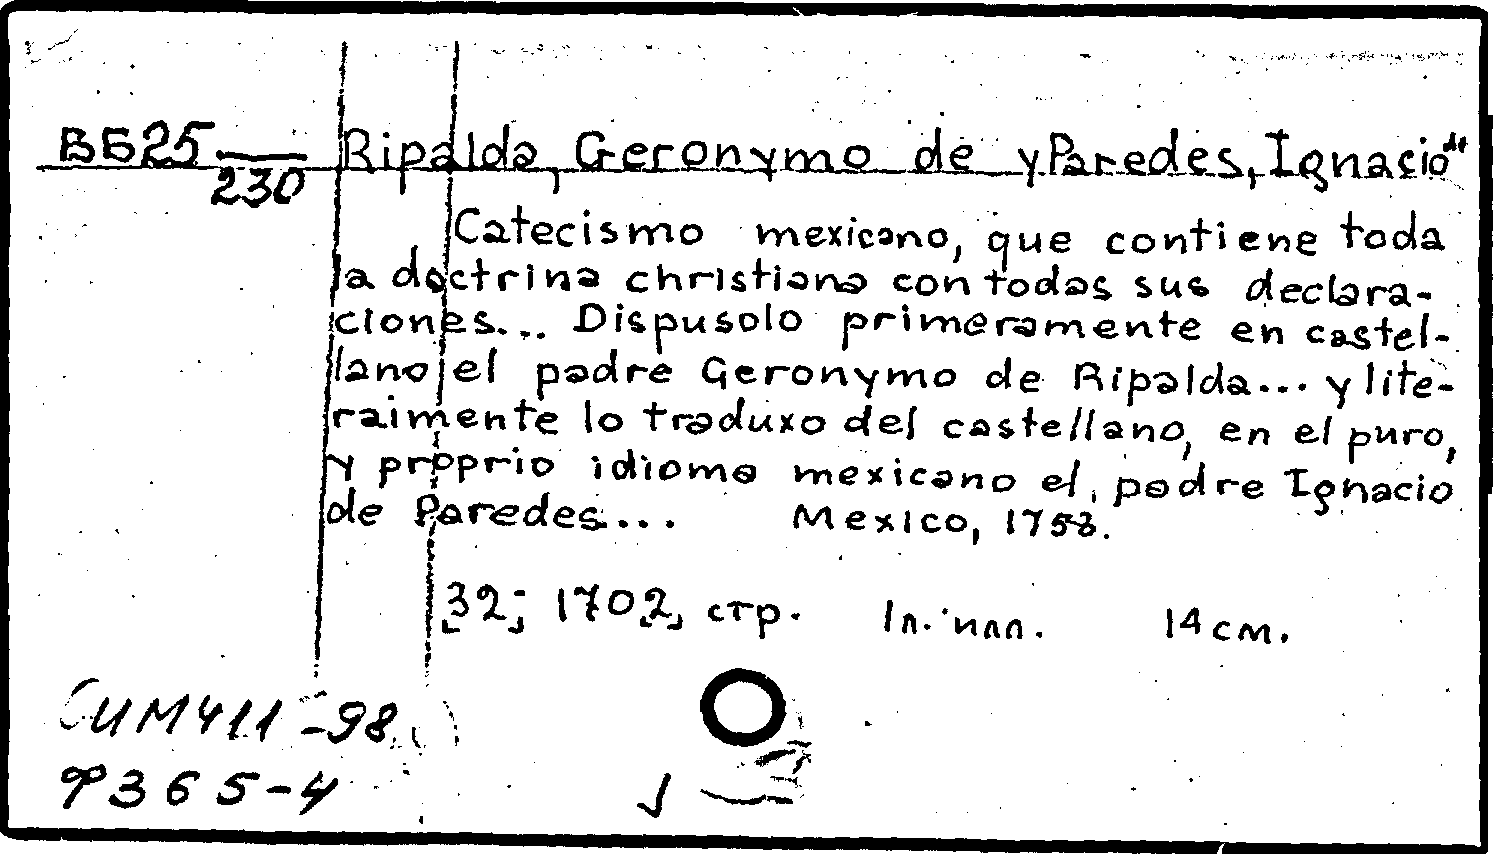 ВБ25
230
Ripalda, Geronymo de y Paredes, Ignacio de
Catecismo mexicano, que contiene toda
la doctrina christiana con todas sus declara-
ciones... Dispusolo primeramente en castel-
lano el padre Geronymo de Ripalda... y lite-
raimente lo traduxo del castellano, en el puro,
y proprio idioma mexicano el padre Ignacio
de Paredes... Mexico, 1758.
[32], 170[2] стр. 1 л. илл. 14 см.
СИМ411-98
Р365-4